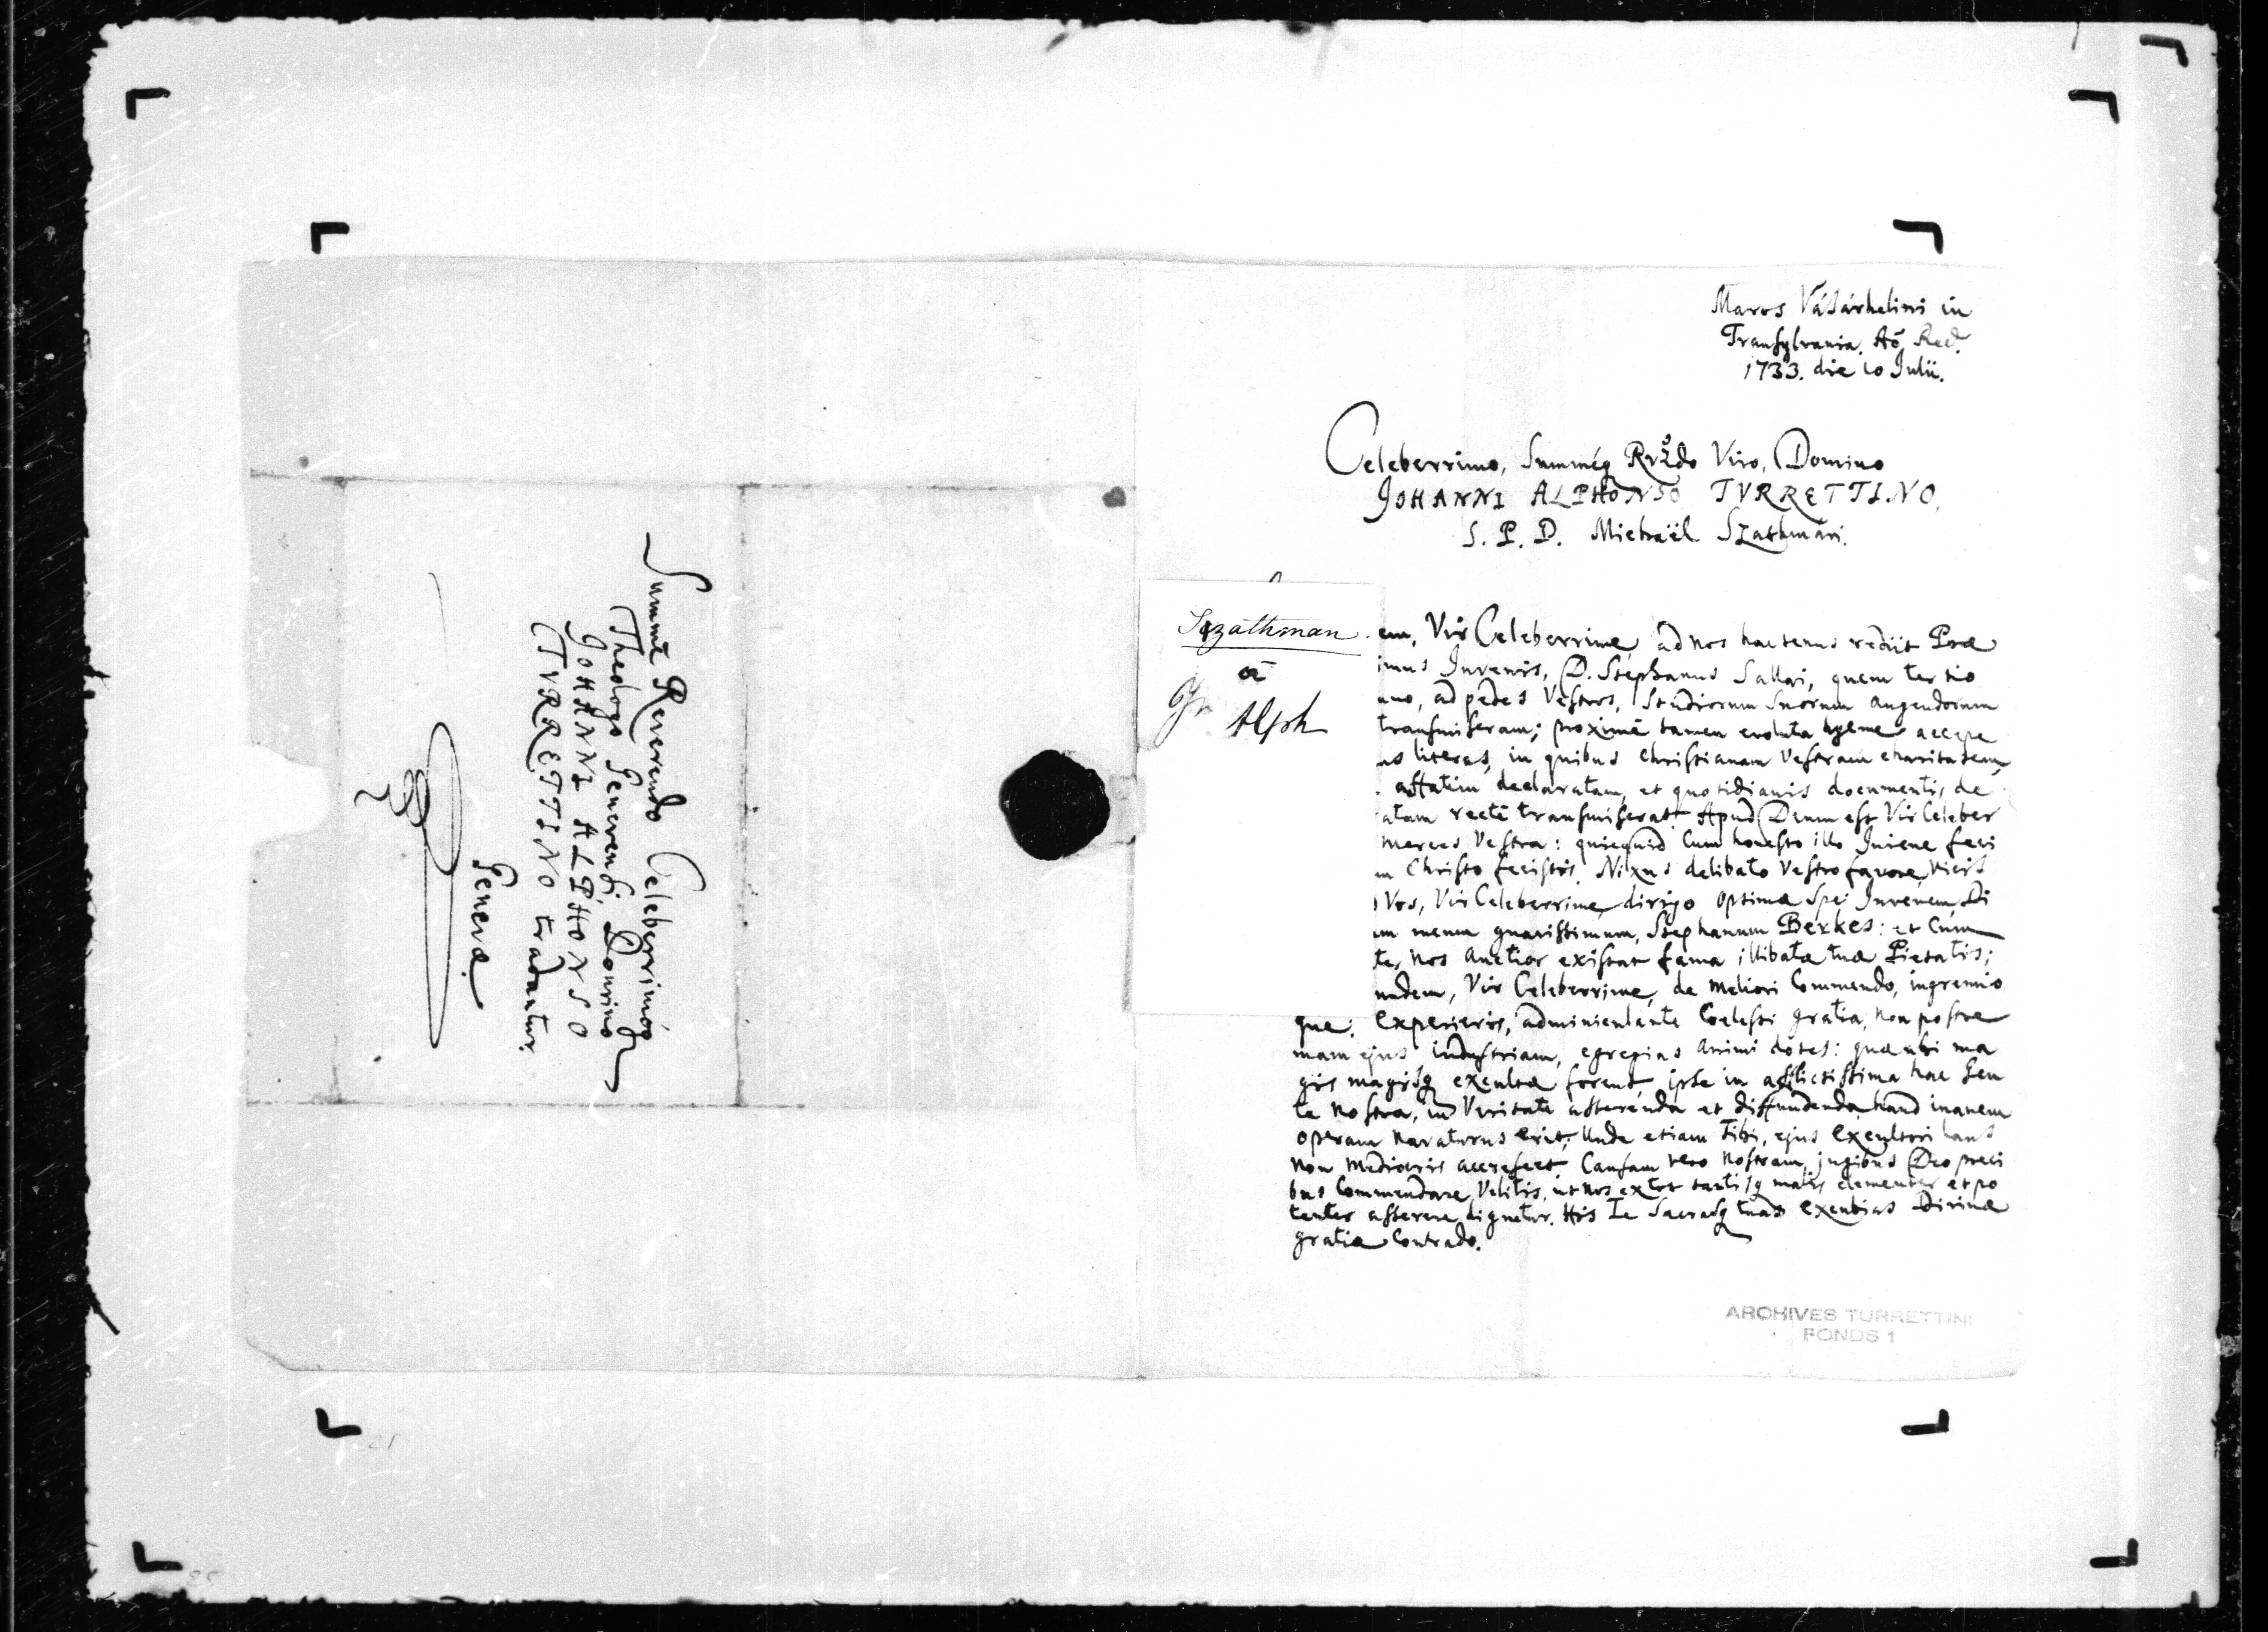 Summè Reverendo Celeberrimóq
Theologo Genevensi, Domino
JOHANNI ALPHONSO
TVRRETTINO tradantur.
Genevæ.
Maros Vásárhelini in
Transylvania. Aō Red.
1733. die 10 Julii.
Celeberrimo, Summéq Rv̄do Viro, Domino
JOHANNI ALPHONSO TVRRETTINO,
S. P. D. Michaël Szathmári.
Szathman
a
Alph
em, Vir Celeberrime, ad nos hactenus rediit Præ
imus Juvenis, D. Stephanus Sallai, quem tertio
nno, ad pedes Vestros, Studiorum Suorum augendorum
transmiseram; proximè tamen evoluta hyeme accepe
as literas, in quibus Christianam Vestram charitatem,
affatim declaratam, et quotidianis documentis de
atam rectè transmiserat. Apud Deum est Vir Celeber
merces Vestra: quicquid cum honesto illo Juvene feci
in Christo fecistis. Nixus delibato Vestro favore, vicis
Vos, Vir Celeberrime, dirigo optimæ Spei Juvenem, Di
um meum gnavissimum, Stephanum Berkes: et cum
te, nos auctior existat fama illibatæ tuæ Pietatis;
undem, Vir Celeberrime, de meliori commendo, ingenio
que: Experieris, adminiculante Coelesti gratia, non postre
mam ejus industriam, egregias animi dotes: quæ ubi ma
gis magisq excultæ forent, ipse in afflictissima hac Gen
te nostra, in Veritate asserenda et diffundenda, haud inanem
operam navaturus erit; Unde etiam Tibi, ejus Excultori laus
non mediocris accrescet. Causam vero nostram, jugibus Deo preci
bus commendare Velitis, ut nos ex tot tantisq malis clementer et po
tenter asserere dignetur. His Te Sacrasq tuas Excubias Divinæ
gratiæ contrado.
ARCHIVES TURRETTINI
FONDS 1